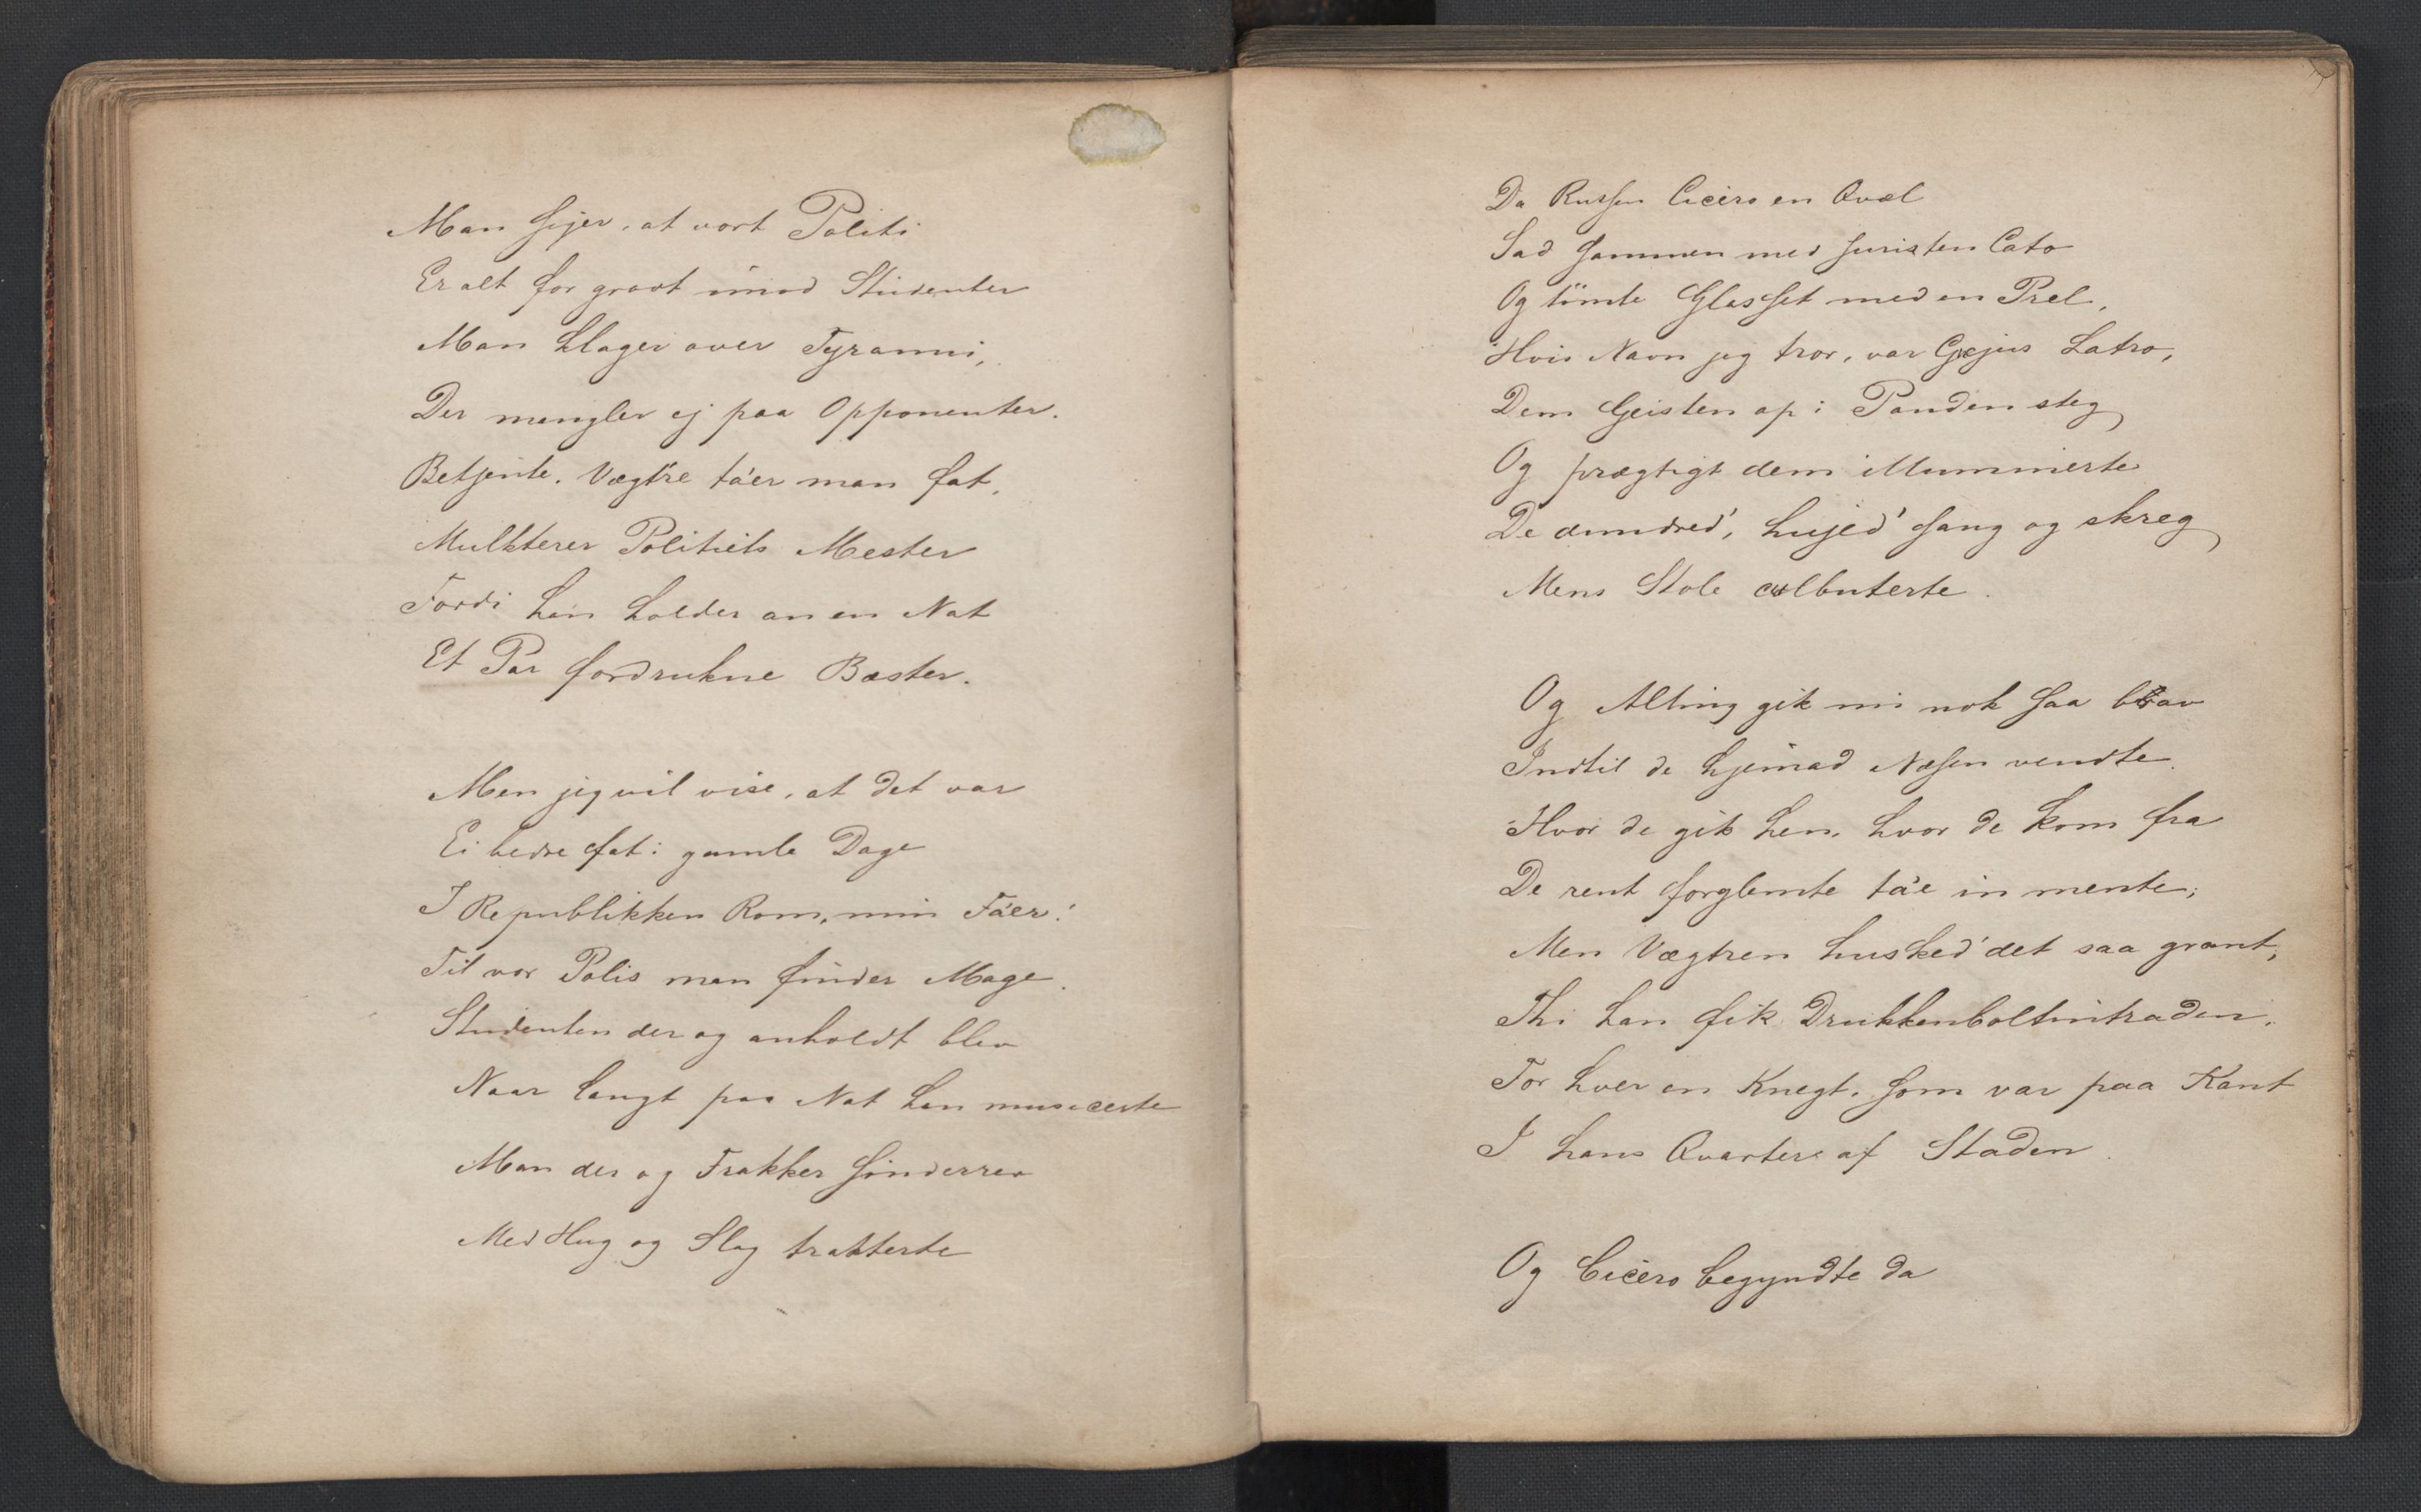 Man siger, at vort Politi
Er alt for grovt imod Studenter
Man klager over Tyranni,
Der mangler ej paa Opponenter.
Betjente, Vægtre ta'er man fat,
Mulkterer Politiets Mester
Fordi han holder an en Nat
Et Par fordrukne Bæster.

Men jeg vil vise, at det var
Ei bedre fat i gamle Dage
I Republikken Rom, min Fa'er!
Til vor Polis man finder Mage.
Studenten der og anholdt blev
Naar langt paa Nat han musicerte
Man der og Frakker sønderrev
Med Hug og Slag trakterte

Da Russen Cicero en Qvæl
Sad sammen med Juristen Cato
Og tømte Glasset med en Prel,
Hvis Navn jeg tror, var Gajus Latro,
Dem Geisten op i Panden steg
Og prægtigt dem illuminerte
De dundred', hujed' sang og skreg
Mens Stole culbuterte.

Og Alting gik nu nok saa brav
Indtil de hjemad Næsen vendte.
Hvor de gik hen, hvor de kom fra
De rent forglemte ta'e in mente;
Men Vægtren husked' det saa grant,
Thi han fik Drukkenboltintraden,
For hver en Knegt, som var paa Kant
I hans Qvarter af Staden.

Og Cicero begyndte da